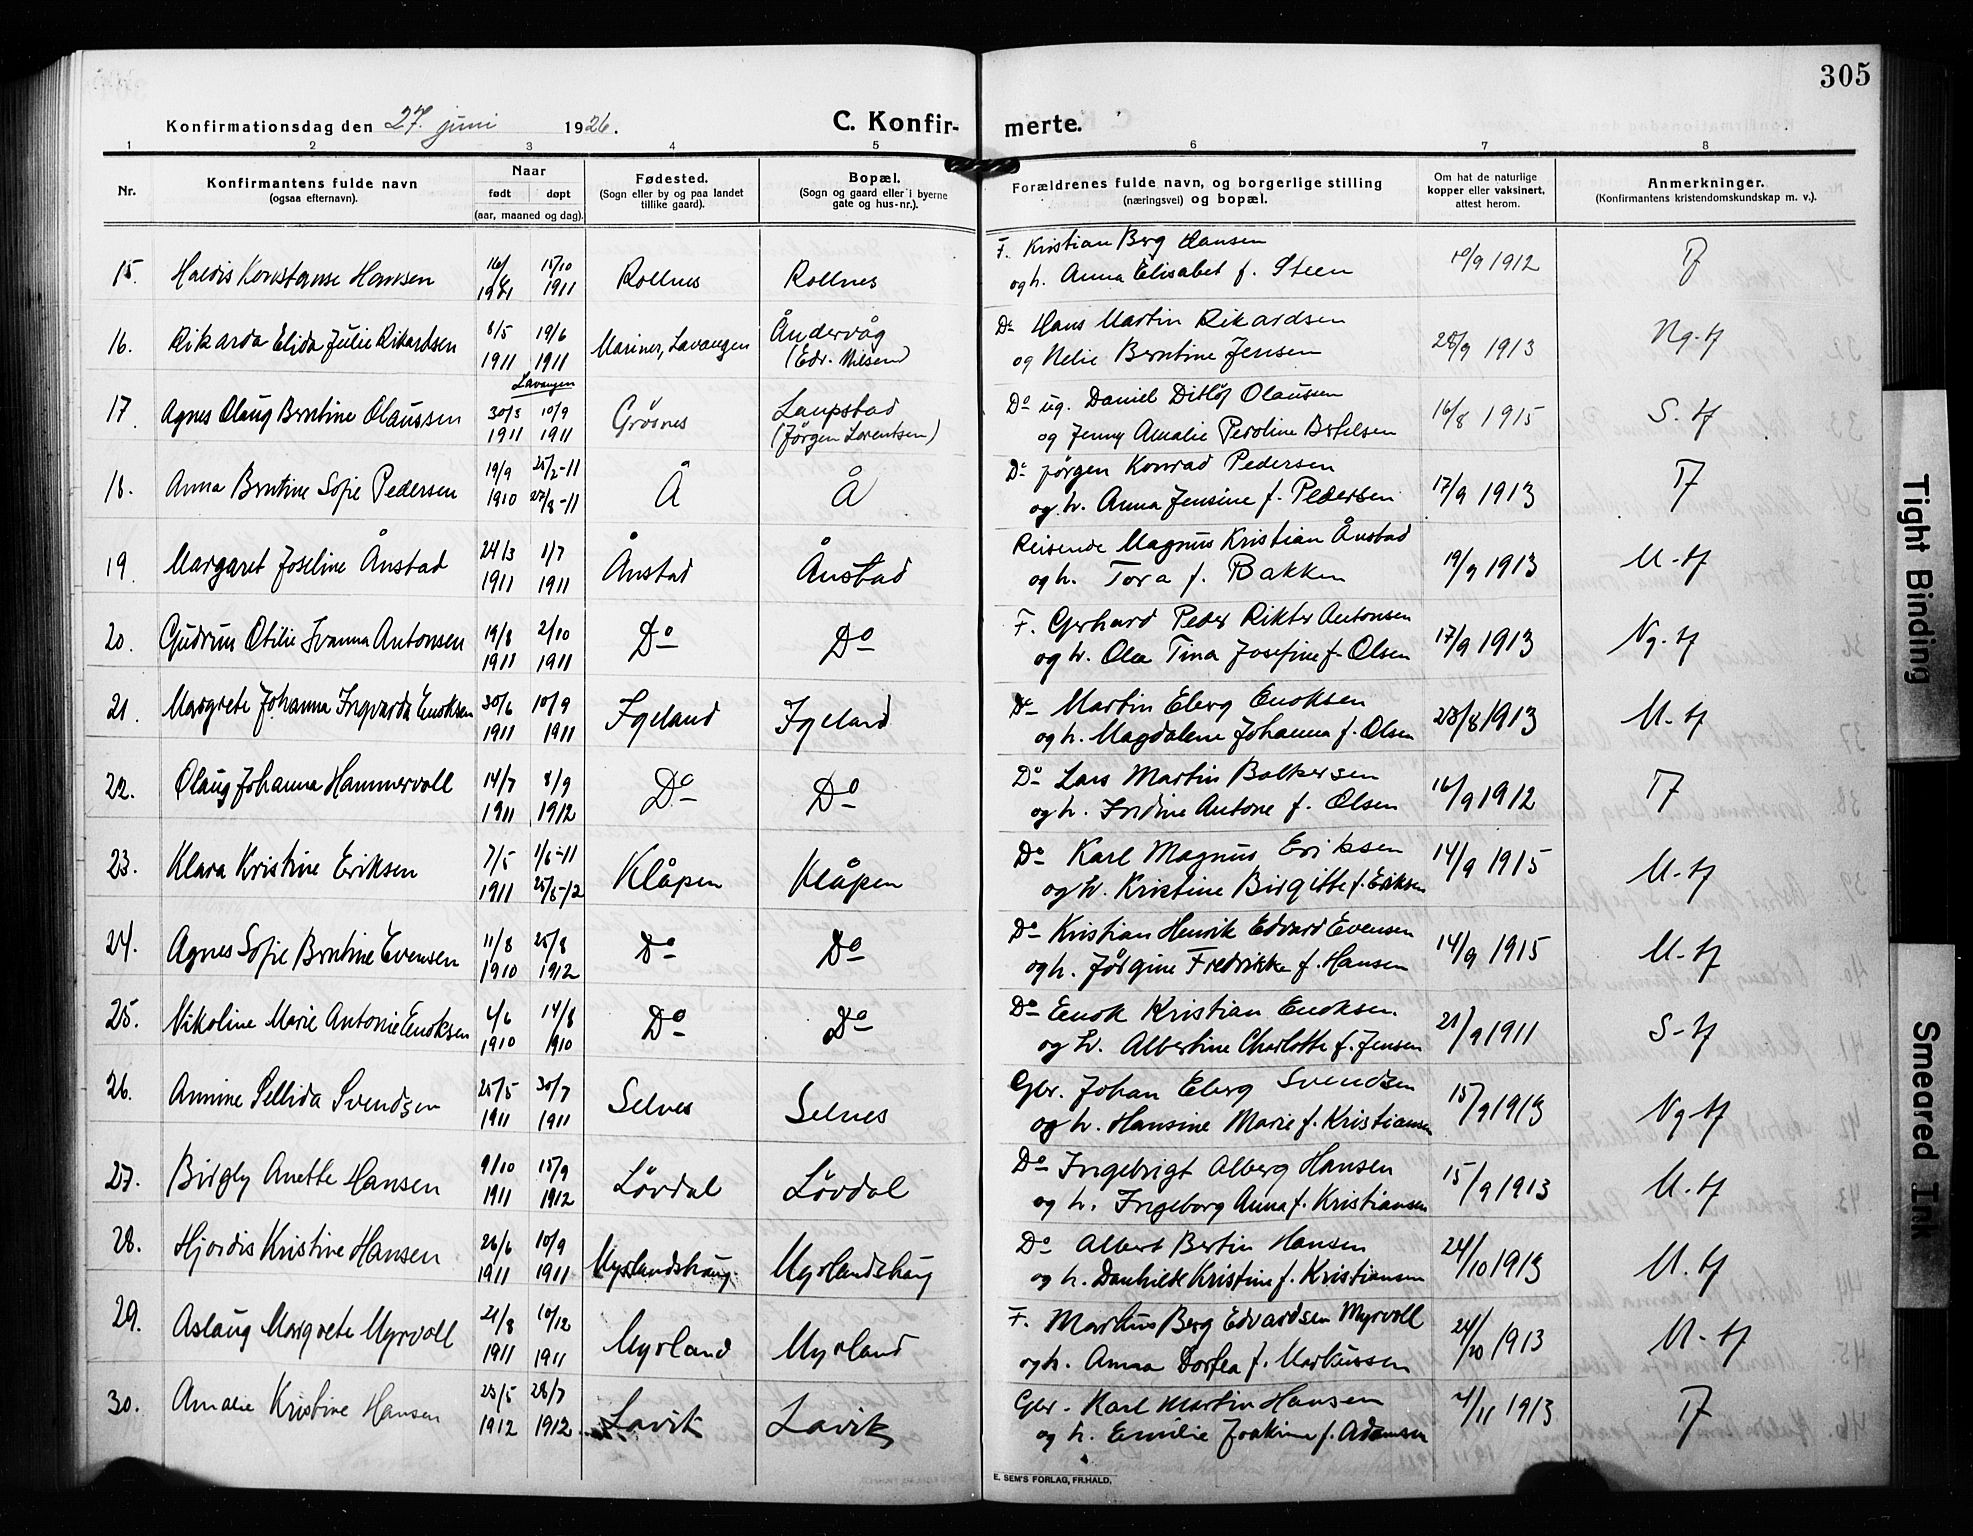 305
Konfirmationsdag den 27. juni 1926.
C. Konfirmerte.
1 2 3 4 5 6 7 8
Nr.
Konfirmantens fulde navn
(ogsaa efternavn).
Naar
født døpt
(aar, maaned og dag).
Fødested.
(Sogn eller by og paa landet
tillike gaard).
Bopæl.
(Sogn og gaard eller i byerne
gate og hus-nr.).
Forældrenes fulde navn, og borgerlige stilling
(næringsvei) og bopæl.
Om hat de naturlige
kopper eller vaksinert,
attest herom.
Anmerkninger.
(Konfirmantens kristendomskundskap m. v.).
F. Kristian Berg Hansen
15. Haldis Konstanse Hansen 1911 15/10 1911 Rollnes Rollnes 10/9 1912 Tf
og h. Anna Elisabet f. Steen
Do Hans Martin Rikardsen
16. Rikarda Elida Julie Rikardsen 8/5 1911 19/6 1911 Lavangen Åndervåg (Edv. Nilsen) 28/9 1913 Ng. tf
og Nelie Berntine Jensen
Lavangen
Do ug. Daniel Ditlöf Olaussen
17. Agnes Olaug Berntine Olaussen 30/3 1911 10/9 1911 Grøsnes Laupstad (Jørgen Lorentsen) 16/8 1915 S. tf
og Jenny Amalie Peroline Bertelsen
Do Jørgen Konrad Pedersen
18. Anna Berntine Sofie Pedersen 19/9 1910 25/2-11 27/8-11 Å Å 17/9 1913 Tf
og h. Anna Jensine f. Pedersen
Reisende Magnus Kristian Ånstad
19. Margaret Joseline Ånstad 24/3 1911 1/7 1911 Ånstad Ånstad 19/9 1913 M. tf
og h. Tora f. Bakken
F. Gerhard Peder Rikter Antonsen
20. Gudrun Otilie Ivanna Antonsen 19/8 1911 2/10 1911 Do Do 17/9 1913 Ng. tf
og h. Olea Tina Josefine f. Olsen
Do Martin Eberg Enoksen
21. Margrete Johanna Ingvarda Enoksen 30/6 1911 10/9 1911 Igeland Igeland 23/8 1913 M. tf
og h. Magdalene Johanna f. Olsen
Do Lars Martin Bolkersen
22. Olaug Johanna Hammervoll 14/7 1911 8/9 1912 Do Do 16/9 1912 Tf
og h. Fridine Antone f. Olsen
Do Karl Magnus Eriksen
23. Klara Kristine Eriksen 7/5 1911 1/6-11 25/8-12 Klåpen Klåpen 14/9 1915 M. tf
og h. Kristine Birgitte f. Eriksen
Do Kristian Henrik Edvard Evensen
24. Agnes Sofie Berntine Evensen 11/8 1910 25/8 1912 Do Do 14/9 1915 M. tf
og h. Jørgine Fredrikke f. Hansen
Do Enok Kristian Enoksen.
25. Nikoline Marie Antonie Enoksen 4/6 1910 14/8 1910 Do Do 21/9 1911 S. tf
og h. Albertine Charlotte f. Jensen
Gbr. Johan Eberg Svendsen
26. Annine Sellida Svendsen 25/5 1911 30/7 1911 Selnes Selnes 15/9 1913 Ng. tf
og h. Hansine Marie f. Kristiansen
Do Ingebrigt Alberg Hansen
27. Birgly Anette Hansen 9/10 1911 15/9 1912 Lövdal Lövdal 15/9 1913 M. tf
og h. Ingeborg Anna f. Kristiansen
Do Albert Bertin Hansen
28. Hjordis Kristine Hansen 26/6 1911 10/9 1911 Myrlandshaug Myrlandshaug 24/10 1913 M. tf
og h. Danhilde Kristine f. Kristiansen
F. Markus Berg Edvardsen Myrvoll
29. Aslaug Margrete Myrvoll 21/8 1911 10/12 1911 Myrland Myrland 24/10 1913 M. tf
og h. Anna Dortea f. Markussen
Gbr. Karl Martin Hansen
30. Amalie Kristine Hansen 23/5 1912 28/7 1912 Lavik Lavik 4/11 1913 Tf
og h. Emilie Joakime f. Adamsen
E. SEM'S FORLAG, FR.HALD.
Tight Binding
Smeared Ink